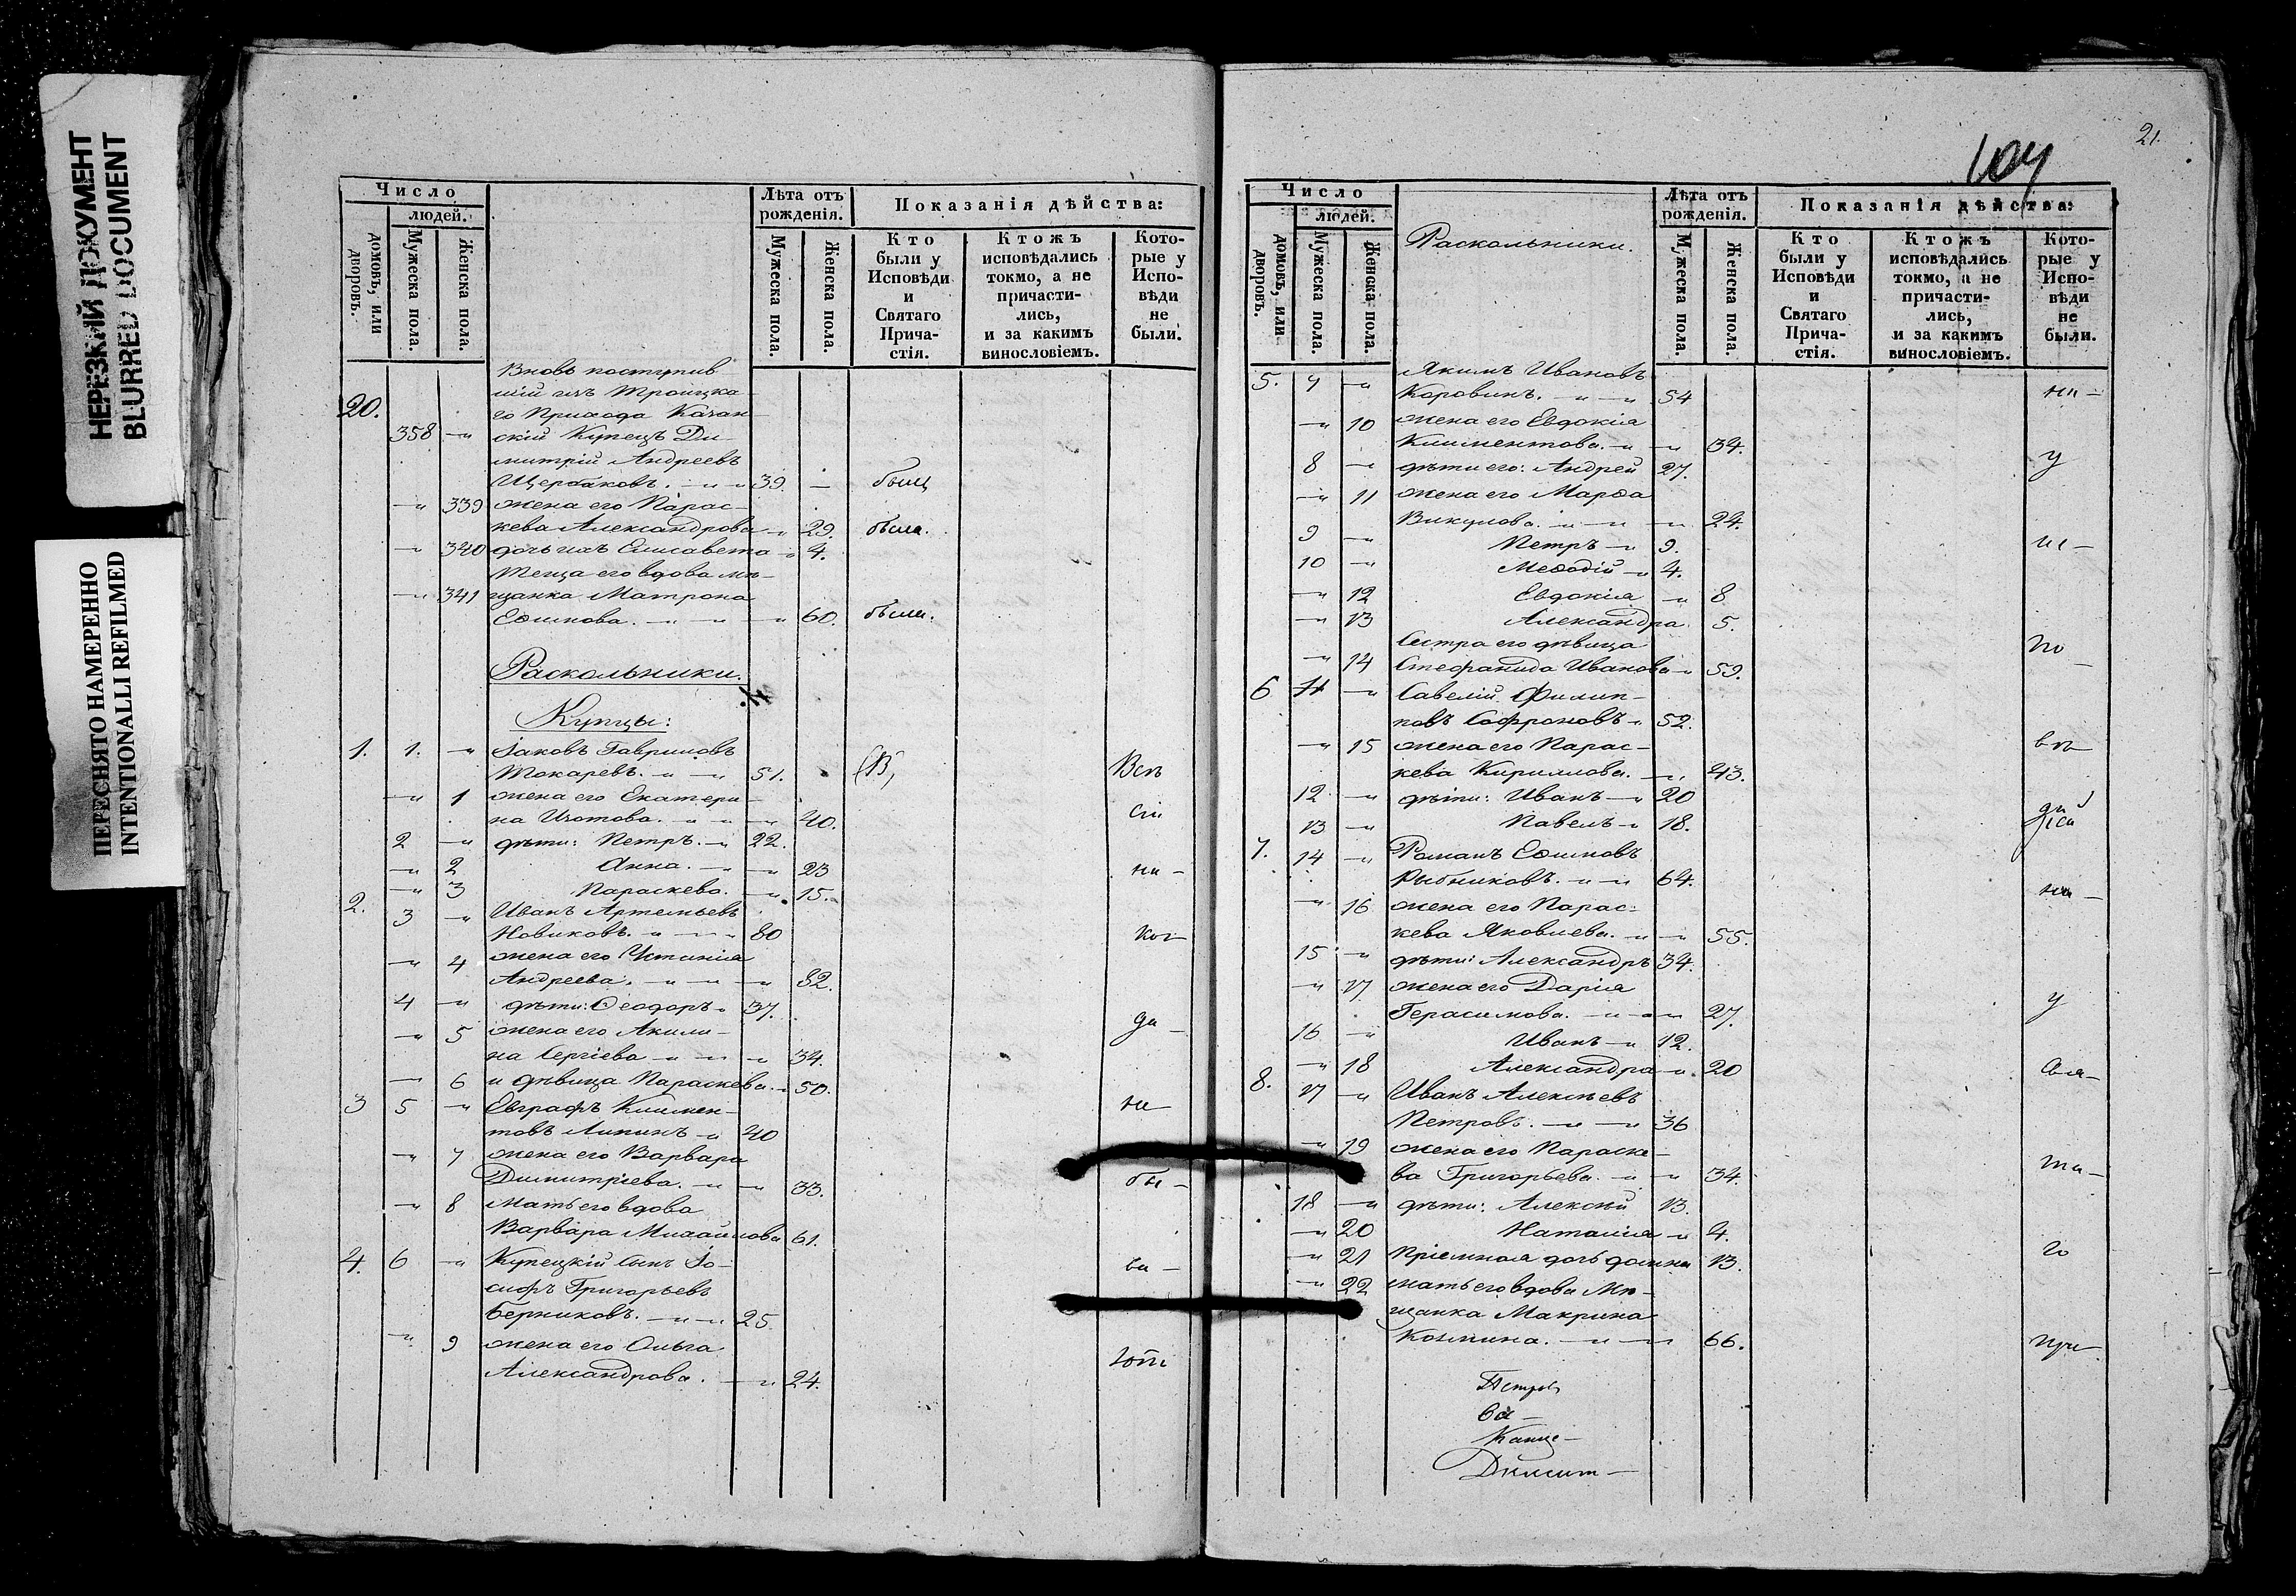 НЕРЕЗКИЙ ДОКУМЕНТ
BLURRED DOCUMENT
ПЕРЕСНЯТО НАМЕРЕННО
INTENTIONALLI REFILMED
Число
людей.
домовъ, или дворовъ.
Мужеска пола.
Женска пола.
Лѣта отъ рожденія.
Мужеска пола.
Женска пола.
Показанія дѣйства:
Кто были у Исповѣди и Святаго Прича-стія.
Ктожъ исповѣдались токмо, а не причасти-лись, и за какимъ винословіемъ.
Кото-рые у Испо-вѣди не были.
Вновь поступив
шій изъ Троицка-
20. го Прихода Казан-
358 -"- скій Купецъ Ди-
митрій Андреевъ
Щербаковъ. 39. — бы
-"- 339 жена его Парас-
кева Александрова 29. была.
-"- 340 дочь ихъ Елисавета 4.
Теща его вдова мѣ-
-"- 341 щанка Матрона
Ефимова. 60. была.
Раскольники.
Купцы:
1. 1. -"- Іаковъ Гавриловъ
Токаревъ. 51. (В) Всѣ
-"- 1 жена его Екатери-
на Изотова. 40. сіи
2 -"- дѣти: Петръ. 22.
-"- 2 Анна. 23 ни-
-"- 3 Параскева. 15.
2. 3 -"- Иванъ Артемьевъ
Новиковъ. 80 ког-
-"- 4 жена его
Андреева. 82.
4 -"- дѣти: Ѳеодоръ 37. да-
-"- 5 жена его Акили-
на Сергіева 34.
-"- 6 и дѣвица Параскева 50.
3 5 -"- Евграфъ Климен- не
товъ Липинъ 40
-"- 7 жена его Варвара
Димитріева. 33. бы-
-"- 8 мать его вдова
Варвара Михайлова 61.
4. 6 -"- Купецкій сынъ Іо- ва-
сифъ Григорьевъ
Берниковъ. 25.
-"- 9 жена его Ольга ютъ
Александрова. 24.
21.
104
Число
людей.
домовъ, или дворовъ.
Мужеска пола.
Женска пола.
Раскольники.
Лѣта отъ рожденія.
Мужеска пола.
Женска пола.
Показанія дѣйства:
Кто были у Исповѣди и Святаго Прича-стія.
Ктожъ исповѣдались токмо, а не причасти-лись, и за какимъ винословіемъ.
Кото-рые у Испо-вѣди не были.
5. 7 -"- Якимъ Ивановъ
Коровинъ. 54 ни-
-"- 10 жена его Евдокія
Климентова. 34.
8 -"- дѣти его: Андрей 27. у
-"- 11 жена его Марѳа
Викулова. 24.
9 -"- Петръ 9. ис-
10 -"- Меѳодій 4.
-"- 12 Евдокія 8
-"- 13 Александра 5.
Сестра его дѣвица по-
-"- 14 Стефанида Иванова 59.
6 11 -"- Савелій Филип-
повъ Софроновъ 52.
-"- 15 жена его Парас- вѣ-
кева Кириллова. 43.
12 -"- дѣти: Иванъ 20
13 -"- Павелъ 18.
7. 14 -"- Романъ Ефимовъ
Рыбниковъ. 64. ни-
-"- 16 жена его Парас-
кева Яковлева. 55.
15 -"- дѣти: Александръ 34.
-"- 17 жена его Дарія у
Герасимова. 27.
16 -"- Иванъ 12.
-"- 18 Александра 20 свя-
8. 17 -"- Иванъ Алексѣевъ
Петровъ. 36
-"- 19 жена его Параске-
ва Григорьева. 34. та-
18 -"- дѣти: Алексѣй 13.
-"- 20 Наталія 4.
-"- 21 Пріемная дочь 13. го
-"- 22 мать его вдова Мѣ-
щанка Макрина
Козмина. 66. при
Петров
ва-